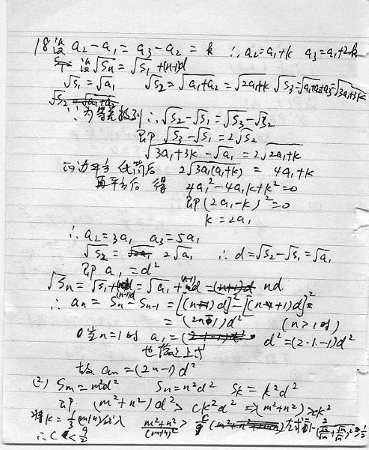 18 设 a₂-a₁=a₃-a₂=k ∴a₂=a₁+k a₃=a₁+2k
设√Sn=√S₁+(n-1)d
√S₁=√a₁ √S₂=√a₁+a₂=√2a₁+k √S₃=√a₁+a₂+a₃=√3a₁+3k
∵为等差数列 ∴√S₂-√S₁=√S₃-√S₂
即 √S₃-√S₁=2√S₂
√3a₁+3k-√a₁=2√2a₁+k
两边平方 化简后 2√3a₁(a₁+k)=4a₁+k
再平方后 得 4a₁²-4a₁k+k²=0
即(2a₁-k)²=0
k=2a₁
∴a₂=3a₁ a₃=5a₁
√S₂=2√a₁ ∴d=√S₂-√S₁=√a₁
即 a₁=d²
√Sn=√S₁+(n-1)d=√a₁+(n-1)d nd
∴an=Sn-Sn-1=
=(2n-1)d² (n>1时)
当n=1时 a₁=d²=(2·1-1)d²
也符合上式
故an=(2n-1)d²
(2) Sm=m²d² Sn=n²d² Sk=k²d²
即 (m²+n²)d²>ck²d² ⇒(m²+n²)>ck²
将k=⅓(m+n)代入 m²+n²/(m+n)²>
∴C<